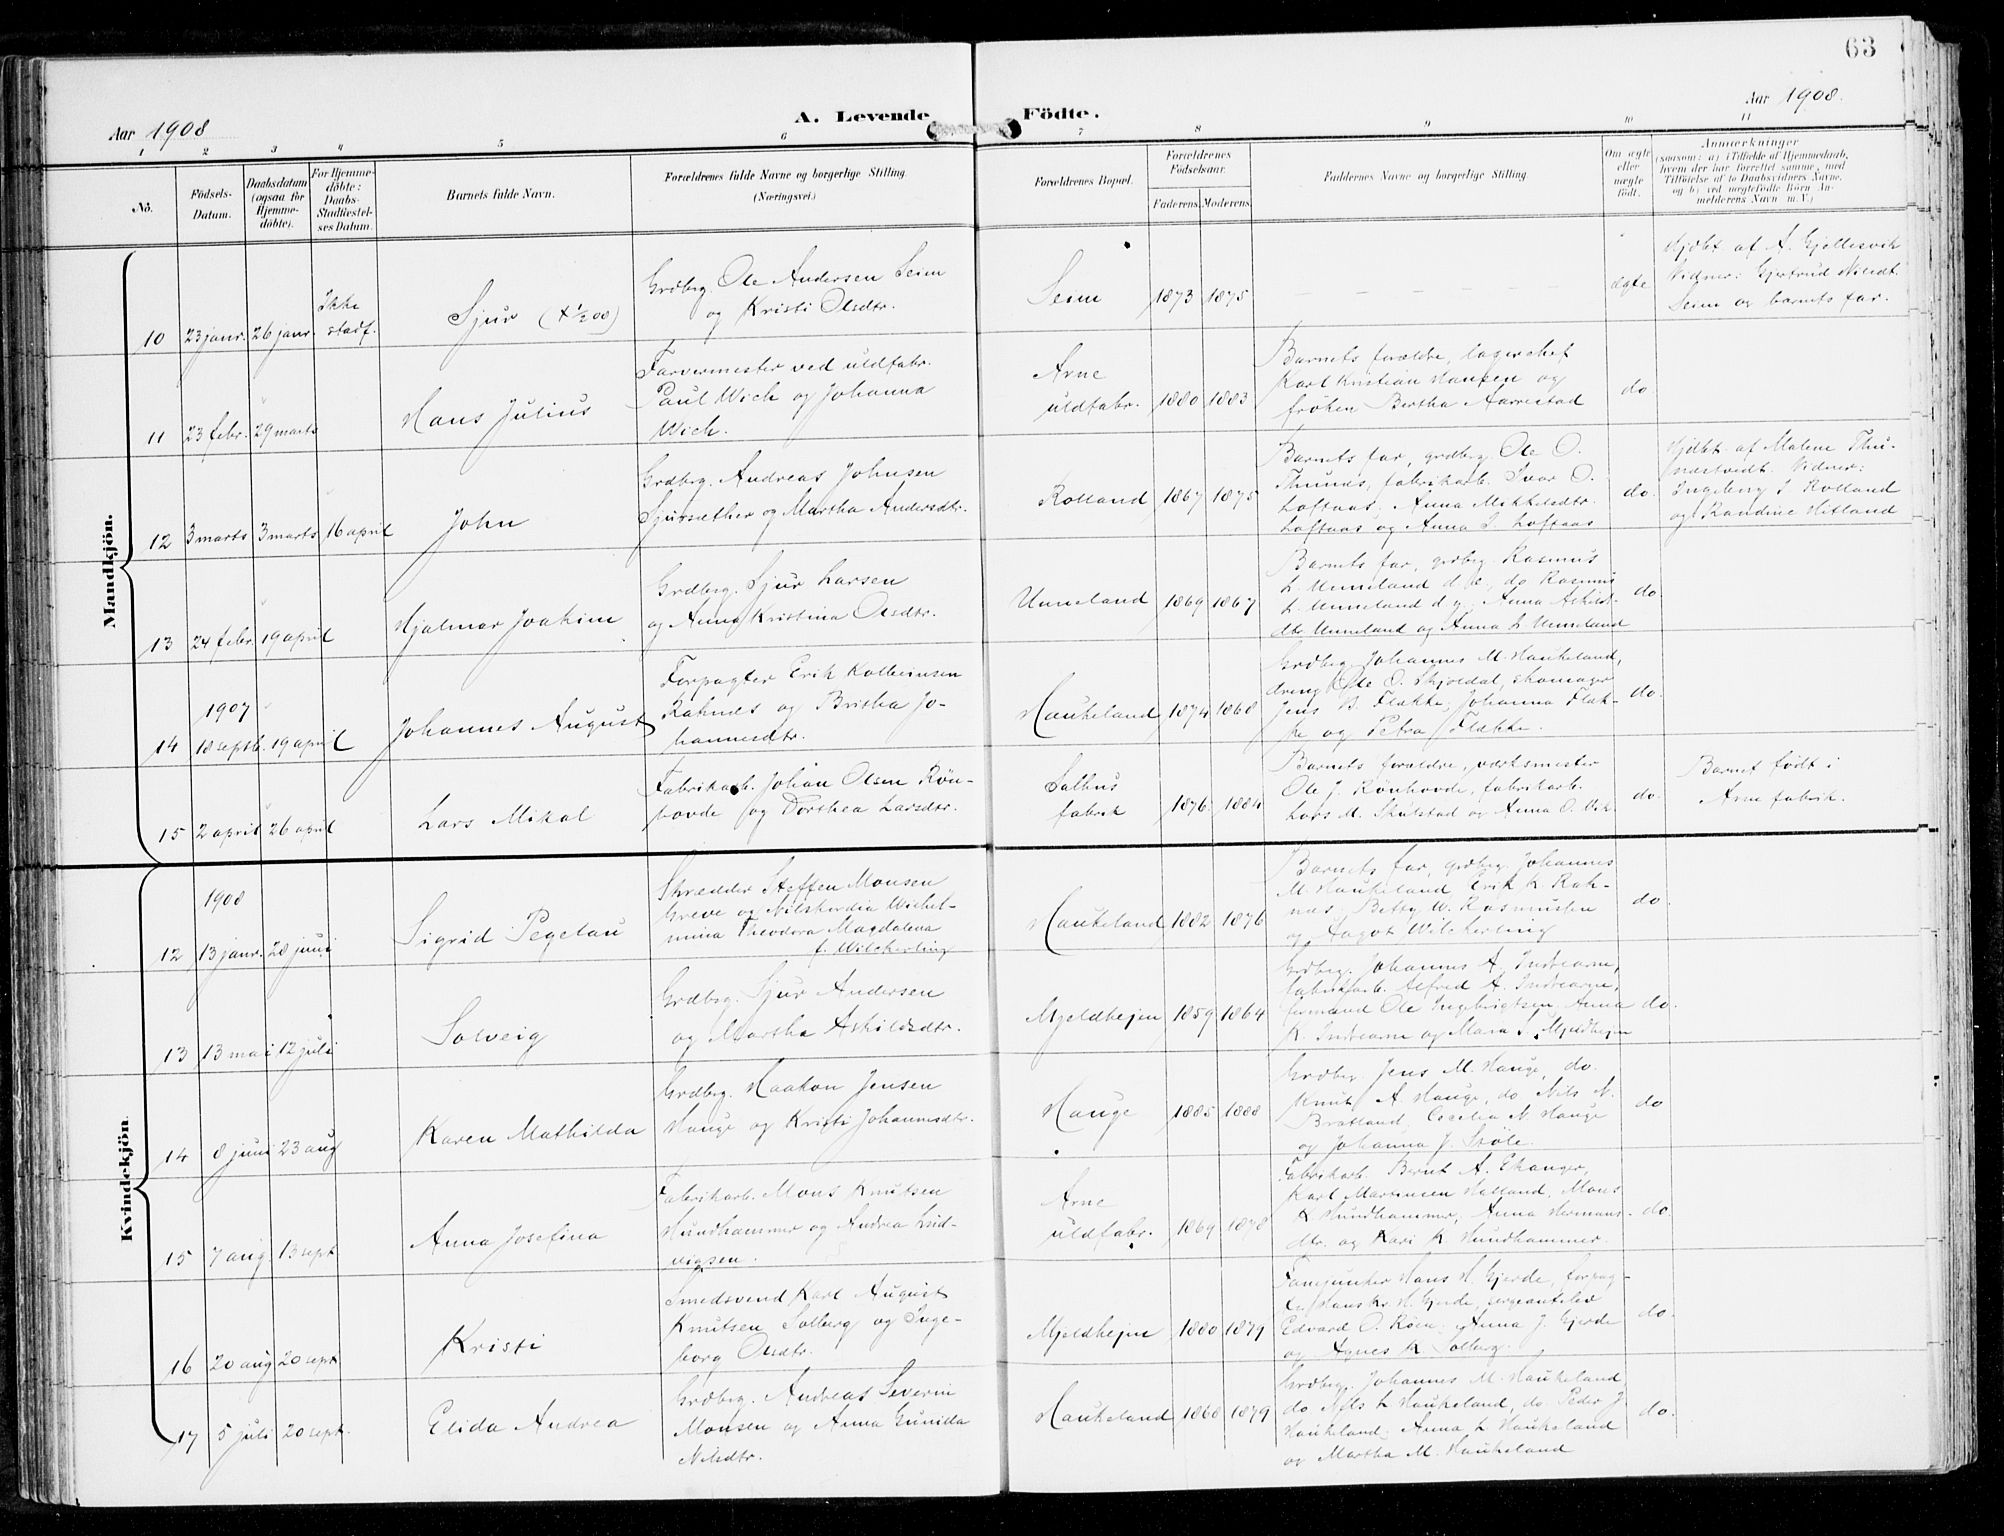 63
Aar 1908
A. Levende Födte.
Aar 1908.
1 2 3 4 5 6 7 8 9 10 11
No.
Födsels-Datum.
Daabsdatum (ogsaa for Hjemmedöbte).
For Hjemmedöbte: Daabs-Stadfæstelses Datum.
Barnets fulde Navn.
Forældrenes fulde Navne og borgerlige Stilling (Næringsvei.)
Forældrenes Bopæl.
Forældrenes Födselsaar.
Faderens. Moderens.
Faddernes Navne og borgerlige Stilling
Om ægte eller uægte födt.
Anmærkninger
(saasom: a) i Tilfælde af Hjemmedaab, hvem der har forrettet samme, med Tilföielse af to Daabsvidners Navne, og b) ved uægtefödte Börn Anmelderens Navn m.V.)
Mandkjön.
10 23 janr. 26 janr. Ikke stadf.
Sjur (+ 1/2 08)
Grdbrg. Ole Andersen Seim
og Kristi Olsdtr.
Seim 1873 1875
ægte
Hjdbt af A. Gjellesvik
Vidner: Gjertrud Nilsdt.
Seim og barnets far.
11 23 febr. 29 marts
Hans Julius
Farvermester ved uldfabr.
Paul Wich og Johanna
Wich.
Arne
uldfabr. 1880 1883
Barnets forældre, lagerchef
Karl Kristian Hansen og
fröken Bertha Aarrestad
do
12 3 marts 3 marts 16 april
John
Grdbrg. Andreas Johnsen
Sjursæther og Martha Andersdtr.
Rolland 1867 1875
Barnets far, grdbrg. Ole O.
Thunæs, fabrikarb. Ivar O.
Loftaas, Anna Mikkelsdtr.
Loftaas og Anna I. Loftaas
do.
Hjdbt. af Malene Thu-
næstvedt. Vidner:
Ingeborg I. Rolland
og Randine Hitland
13 24 febr. 19 april
Hjalmar Joakim
Grdbrg. Sjur Larsen
og Anna Kristina Olsdtr.
Unneland 1869 1867
Barnets far, grdbrg. Rasmus
L. Unneland d. æ., do Rasmus
L. Unneland d y., Anna Askilds-
dtr. Unneland og Anna L. Unneland
do.
1907
14 18 septb. 19 april
Johannes August
Forpagter Erik Kolbeinsen
Raknæs og Britha Jo-
hannesdtr.
Haukeland 1874 1868
Grdbrg. Johannes M. Haukeland,
dreng Ole O. Skjoldal, skomager
Jens B. Flække, Johanna Flæk-
ke og Petra Flække.
do.
15 2 april 26 april
Lars Mikal
Fabrikarb. Johan Olsen Rön-
hovde og Dorthea Larsdtr.
Salhus
fabrik 1876 1884
Barnets forældre, værksmester
Ole J. Rönhovde, fabrikarb.
Lars M. Skulstad og Anna O. Vik
do.
Barnet födt i
Arne fabrik.
Kvindekjön.
1908
12 13 janr. 28 juni
Sigrid Pegelau
Skrædder Steffen Monsen
Greve og Nilskordia Wichel-
mina Theodora Magdalena
f. Wilckerling
Haukeland 1882 1876
Barnets far, grdbrg. Johannes
M. Haukeland, Erik K. Rak-
næs, Betty W. Rasmussen
og Aagot Wilckerling
do.
13 13 mai 12 juli
Solveig
Grdbrg. Sjur Andersen
og Martha Askildsdtr.
Mjeldhejen 1859 1864
Grdbrg. Johannes A. Indrearne,
fabrikarb. Alfred A. Indrearne,
formand Ole Ingebrigtsen, Anna
K. Indrearne og Maria S. Mjeldhejen
do.
14 8 juni 23 aug
Karen Mathilda
Grdbrg. Haakon Jensen
Hauge og Kristi Johannesdtr.
Hauge 1885 1888
Grdbrg. Jens M. Hauge, do.
Knut A. Hauge, do Nils N.
Bratland, Cecilia N. Hauge
og Johanna J. Stöle.
do
15 7 aug. 13 sept.
Anna Josefina
Fabrikarb. Mons Knutsen
Hundhammer og Andrea Lud-
vigsen.
Arne
uldfabr. 1869 1878
Fabrikarb. Bernt A. Ekanger,
Karl Martinsen Halland, Mons
K Hundhammer, Anna Hermans-
dtr. og Kari K. Hundhammer.
do
16 20 aug 20 sept.
Kristi
Smedsvend Karl August
Knutsen Solberg og Inge-
borg Olsdtr.
Mjeldhejen 1880 1879
Fanejunker Hans H. Gjerde, forpag-
ter Hans Kr. H. Gjerde, sergeantelev
Edvard O. Röen, Anna J. Gjerde
og Agnes K. Solberg.
do.
17 5 juli 20 sept.
Elida Andrea
Grdbrg. Andreas Severin
Monsen og Anna Gunida
Nilsdtr.
Haukeland 1868 1879
Grdbrg. Johannes M. Haukeland,
do Nils L Haukeland, do. Peder J.
Haukeland, Anna L Haukeland
og Martha M. Haukeland
do.